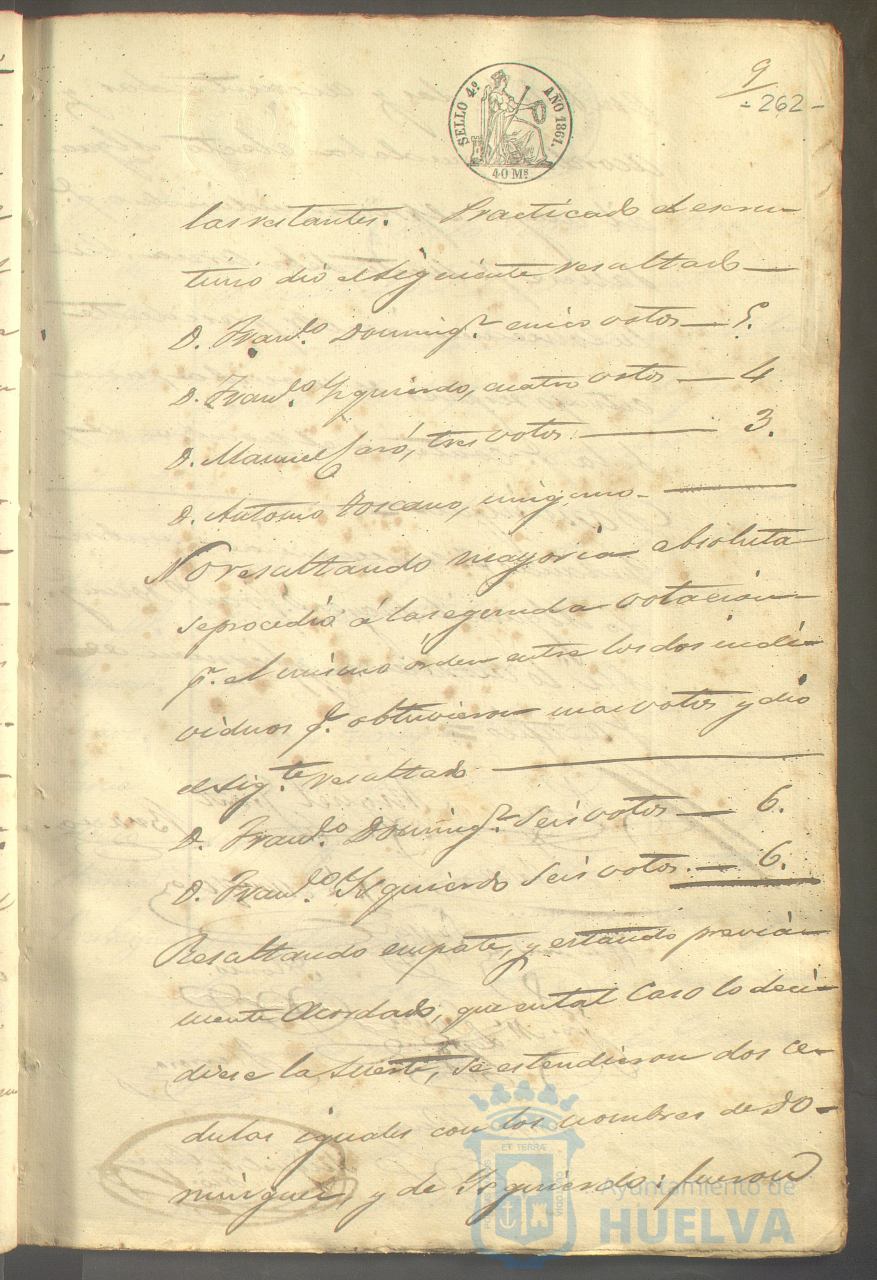 SELLO 4º AÑO 1861.
40 Ms
9
- 262 -
las restantes. Practicado el escru-
tinio dió el siguiente resultado
D. Franco. Domingz. cinco votos — 5.
D. Franco. Yzquierdo, cuatro votos — 4
D. Manuel Garó, tres votos — 3.
D. Antonio Toscano, ninguno —
No resultando mayoria absoluta
se procedió á la segunda votacion
pr. el mismo órden entre los dos indi-
viduos q. obtuvieron mas votos y dio
el sigte. resultado —
D. Franco. Domingz. Seis votos — 6.
D. Franco. Yzquierdo Seis votos. — 6.
Resultando empate, y estando previa-
mente acordado, que en tal Caso lo deci-
diese la Suerte, se estendieron dos ce-
dulas iguales con los nombres de Do-
minguez, y de Yzquierdo: fueron
ET TERRAE
Ayuntamiento de
HUELVA